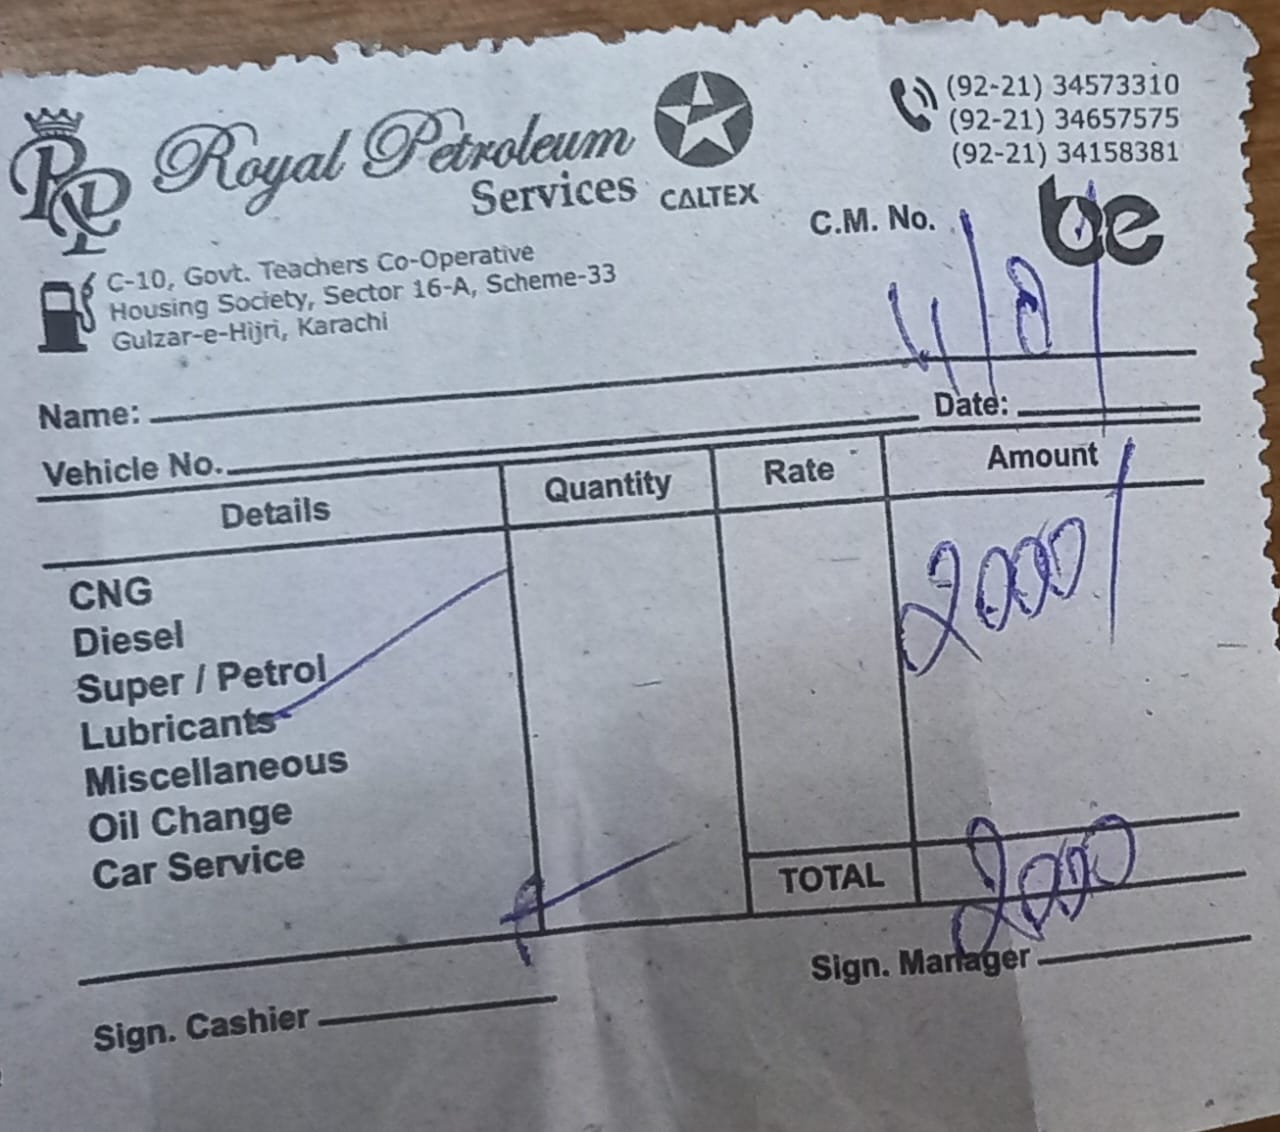 RP Royal Petroleum
Services
CALTEX
(92-21) 34573310
(92-21) 34657575
(92-21) 34158381
C-10, Govt. Teachers Co-Operative
Housing Society, Sector 16-A, Scheme-33
Gulzar-e-Hijri, Karachi
C.M. No.
be
Name:
Vehicle No. Date:
Details Quantity Rate Amount
CNG
Diesel
Super / Petrol
Lubricants
Miscellaneous
Oil Change
Car Service
2000/
TOTAL 2000
Sign. Cashier Sign. Manager